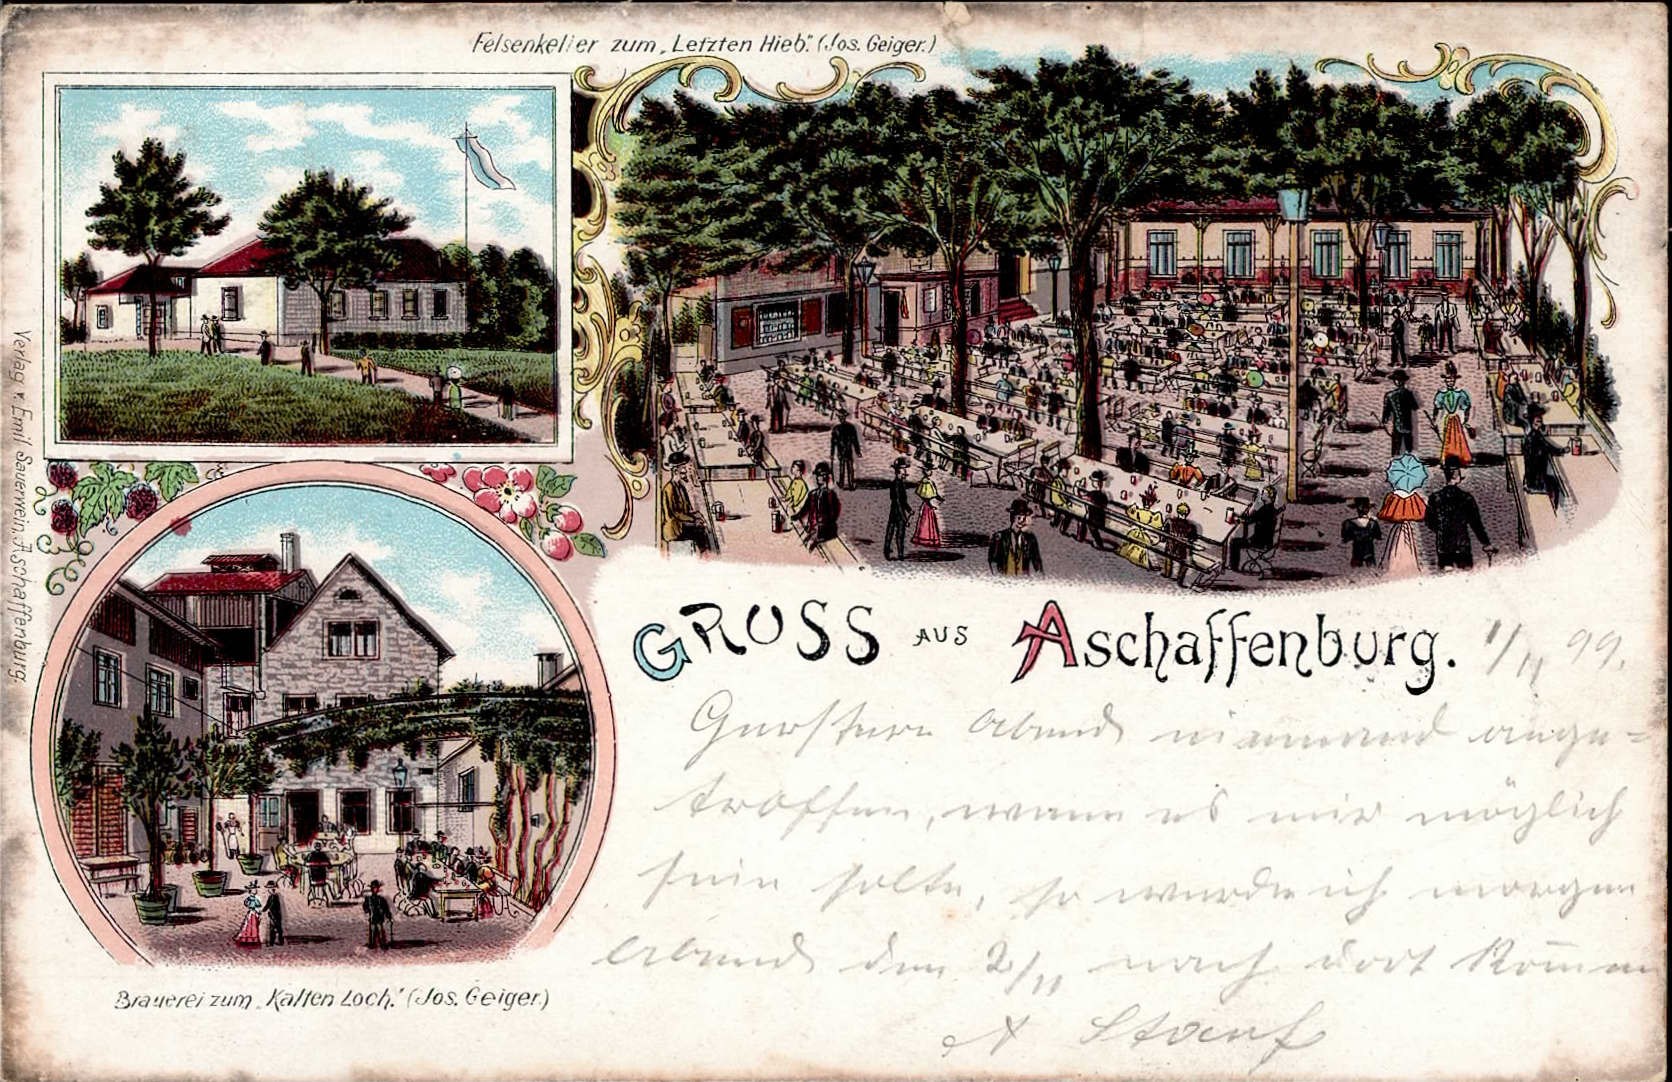 Felsenkeller zum „Letzten Hieb.“ (Jos. Geiger.)
Verlag v. Emil Sauerwein, Aschaffenburg.
Brauerei zum „Kalten Loch.“ (Jos. Geiger.)
GRUSS AUS Aschaffenburg. 1/11 99.
Gestern Abend niemand ange-
troffen, wenn es mir möglich
sein sollte, so werde ich morgen
Abend den 2/11 nach dort kommen
A Stauf